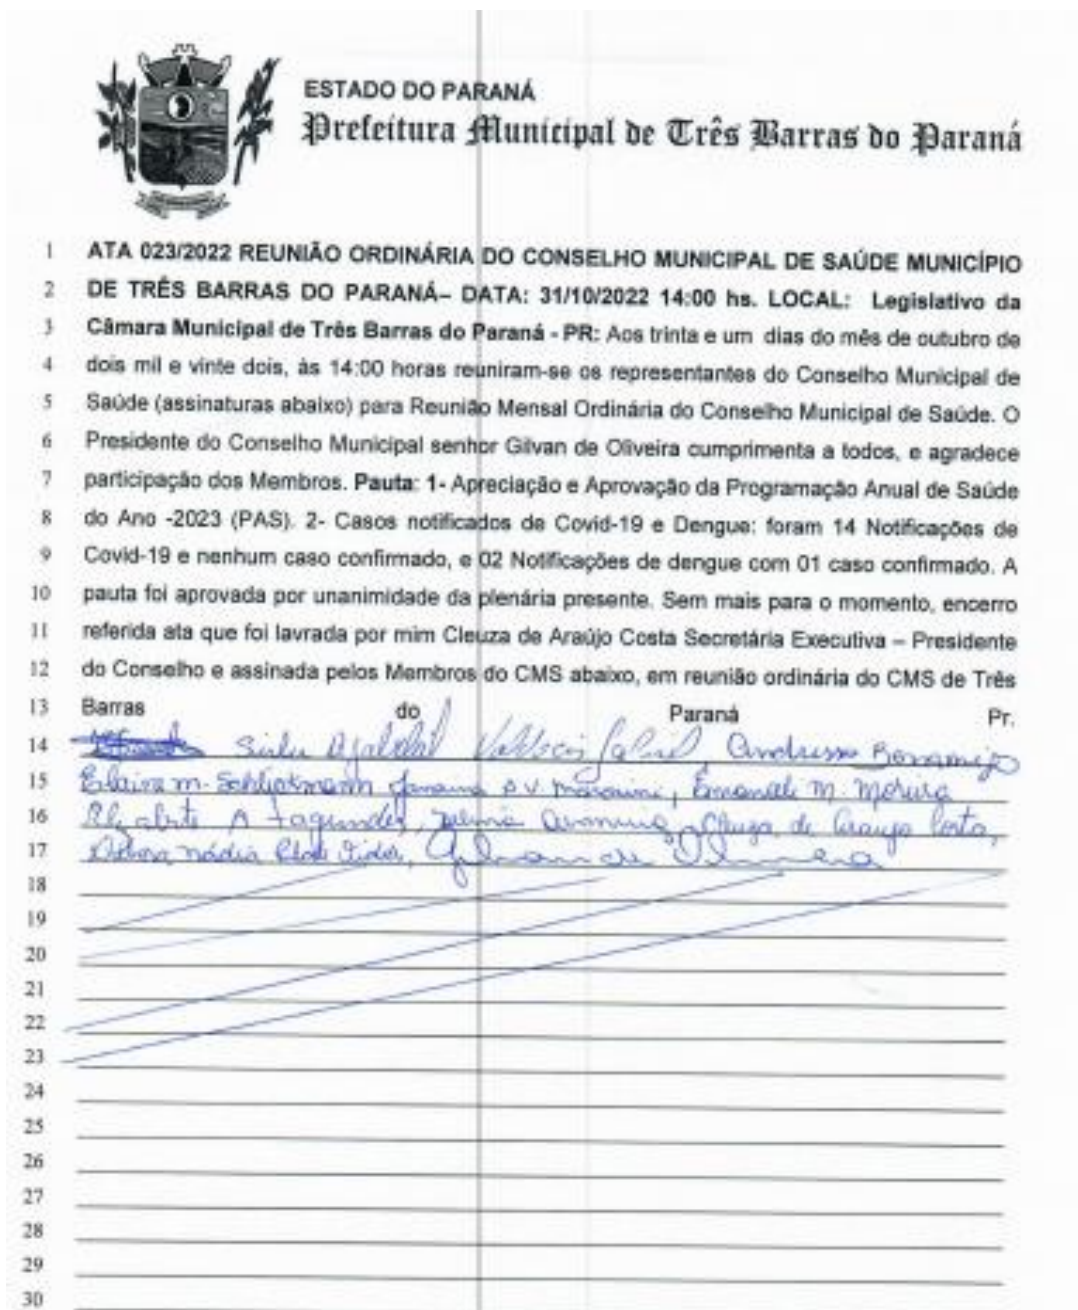 ESTADO DO PARANÁ
Prefeitura Municipal de Três Barras do Paraná
1 ATA 023/2022 REUNIÃO ORDINÁRIA DO CONSELHO MUNICIPAL DE SAÚDE MUNICÍPIO
2 DE TRÊS BARRAS DO PARANÁ– DATA: 31/10/2022 14:00 hs. LOCAL: Legislativo da
3 Câmara Municipal de Três Barras do Paraná - PR: Aos trinta e um dias do mês de outubro de
4 dois mil e vinte dois, às 14:00 horas reuniram-se os representantes do Conselho Municipal de
5 Saúde (assinaturas abaixo) para Reunião Mensal Ordinária do Conselho Municipal de Saúde. O
6 Presidente do Conselho Municipal senhor Gilvan de Oliveira cumprimenta a todos, e agradece
7 participação dos Membros. Pauta: 1- Apreciação e Aprovação da Programação Anual de Saúde
8 do Ano -2023 (PAS). 2- Casos notificados de Covid-19 e Dengue: foram 14 Notificações de
9 Covid-19 e nenhum caso confirmado, e 02 Notificações de dengue com 01 caso confirmado. A
10 pauta foi aprovada por unanimidade da plenária presente. Sem mais para o momento, encerro
11 referida ata que foi lavrada por mim Cleuza de Araújo Costa Secretária Executiva – Presidente
12 do Conselho e assinada pelos Membros do CMS abaixo, em reunião ordinária do CMS de Três
13 Barras do Paraná Pr.
14
15 M.
16 A Fagundes, Cleuza de Araujo Costa,
17 Nádia Gilvan de Oliveira
18
19
20
21
22
23
24
25
26
27
28
29
30